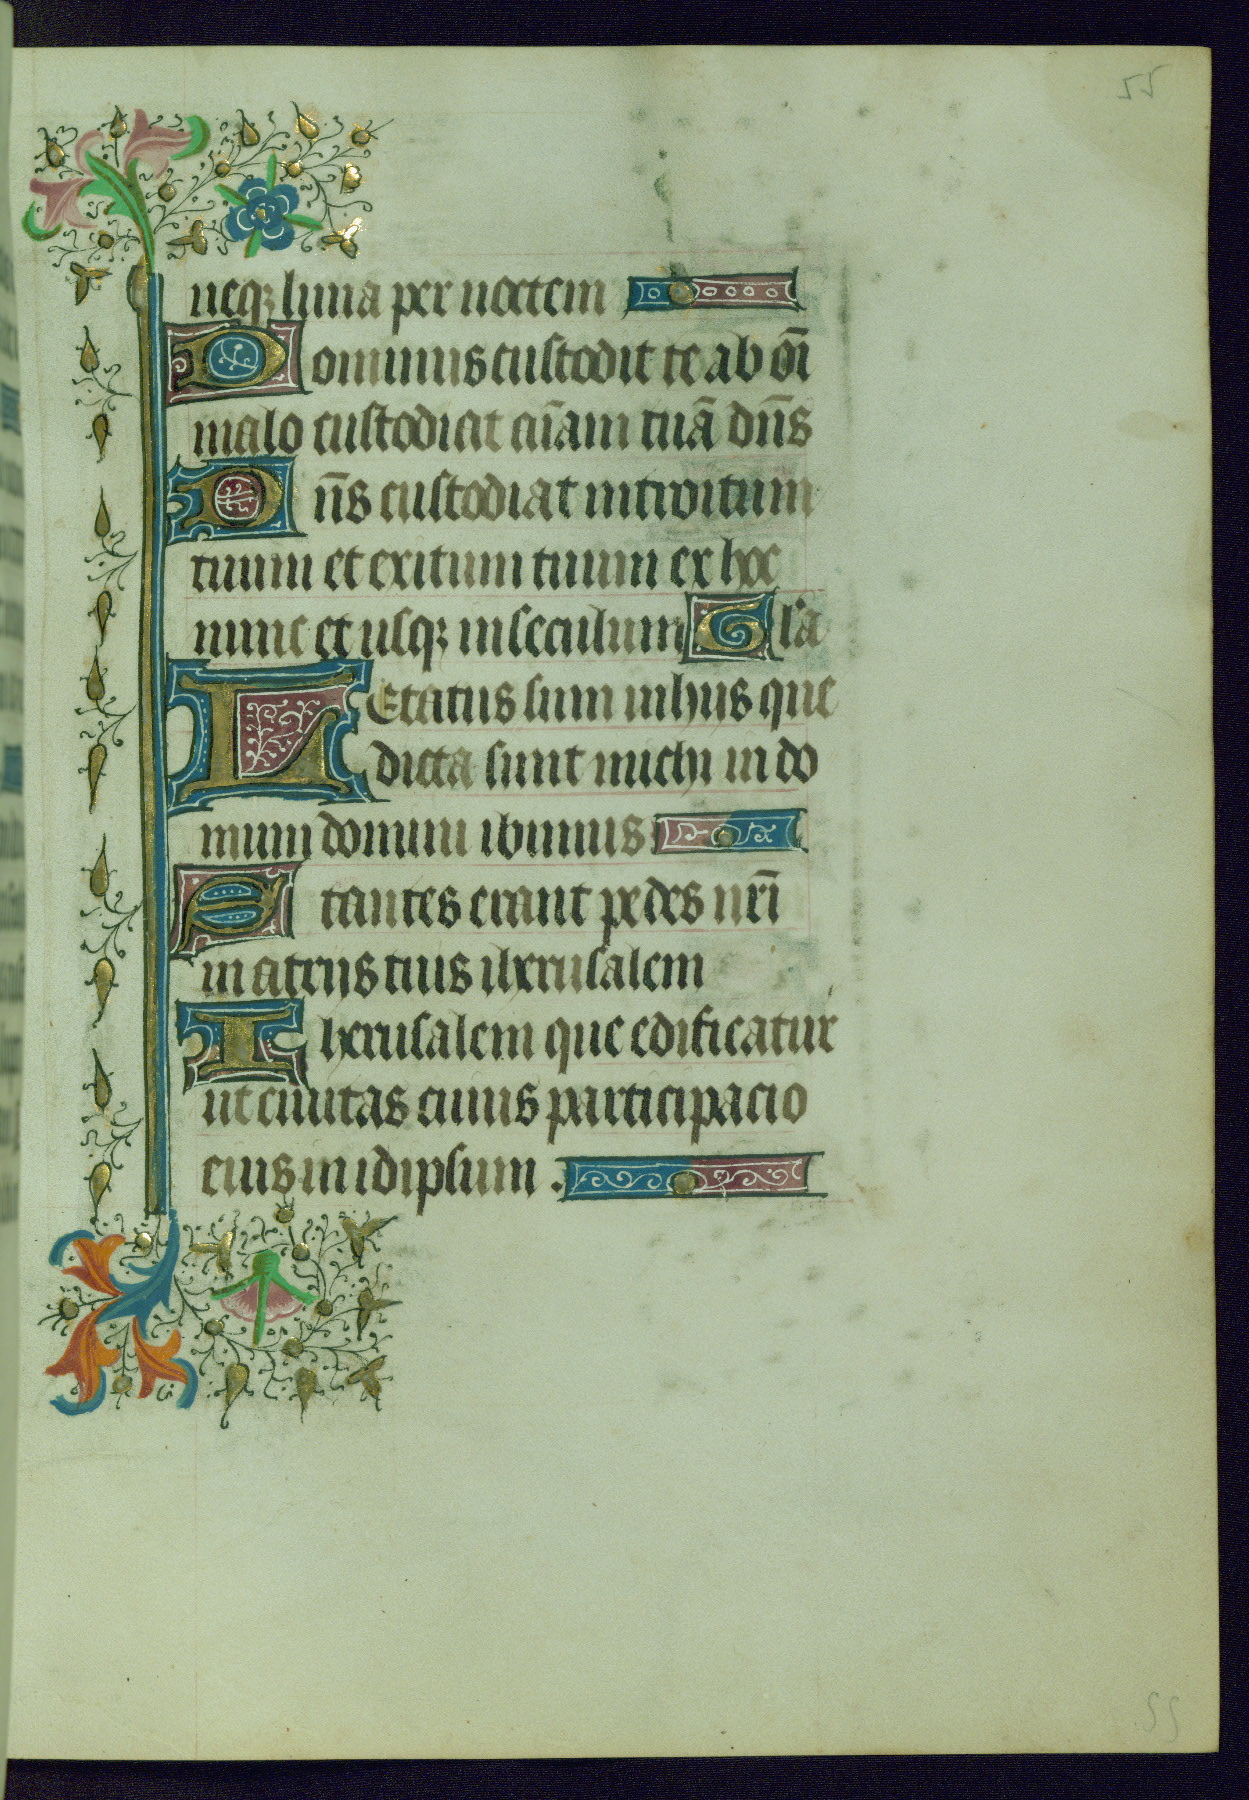 55
neqꝫ luna per noctem
Dominus custodit te ab oı̄
malo custodiat aı̄am tuā dn̄s
Dn̄s custodiat introitum
tuum et exitum tuum ex hoc
nunc et usqꝫ in seculum Gl'a
Letatus sum in hiis que
dicta sunt michi in do
mum domini ibimus
Stantes erant pedes nr̄i
in atriis tuis iherusalem
Iherusalem que edificatur
ut ciuitas cuius participacio
eius in idipsum .